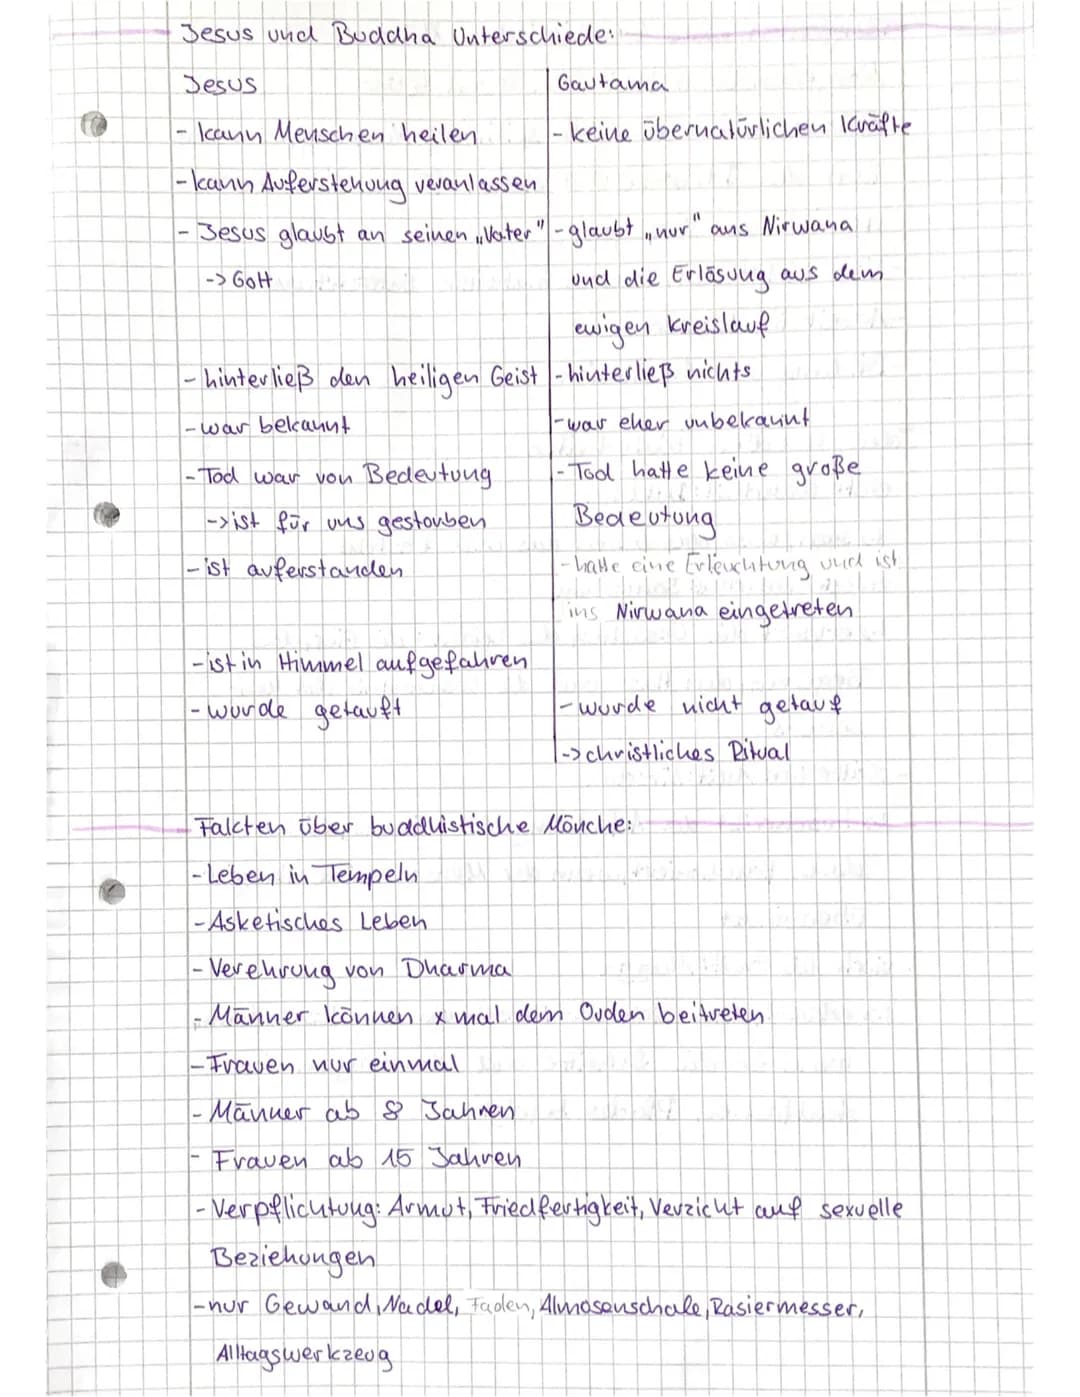 Jesus und Buddha Unterschiede:
Jesus
Gautama
- kann Menschen heilen
- keine übernatürlichen Kräfte
- kann Auferstehung veranlassen
- Jesus glaubt an seinen „Vater"
- glaubt „nur" ans Nirwana
-> Gott
und die Erlösung aus dem
ewigen Kreislauf
- hinterließ den heiligen Geist
- hinterließ nichts
- war bekannt
- war eher unbekannt
- Tod war von Bedeutung
- Tod hatte keine große
-> ist für uns gestorben
Bedeutung
- ist auferstanden
- hatte eine Erleuchtung und ist
ins Nirwana eingetreten
- ist in Himmel aufgefahren
- wurde getauft
- wurde nicht getauf
-> christliches Ritual
Fakten über buddhistische Mönche:
- Leben in Tempeln
- Asketisches Leben
- Verehrung von Dharma
- Männer können x mal dem Orden beitreten
- Frauen nur einmal
- Männer ab 8 Jahren
- Frauen ab 15 Jahren
- Verpflichtung: Armut, Friedfertigkeit, Verzicht auf sexuelle
Beziehungen
- nur Gewand, Nadel, Faden, Almosenschale, Rasiermesser,
Alltagswerkzeug